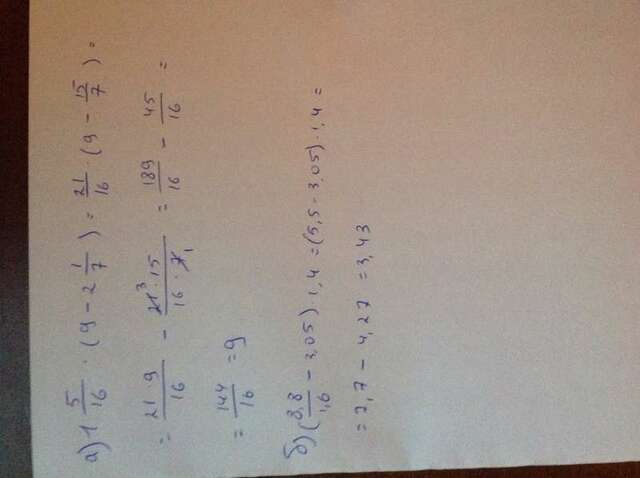 а) 1 5/16 · (9 - 2 1/7) = 21/16 · (9 - 15/7) =
= 21·9/16 - 21³·15/16·7₁ = 189/16 - 45/16 =
= 144/16 = 9
б) (8,8/1,6 - 3,05)·1,4 = (5,5 - 3,05)·1,4 =
= 7,7 - 4,27 = 3,43